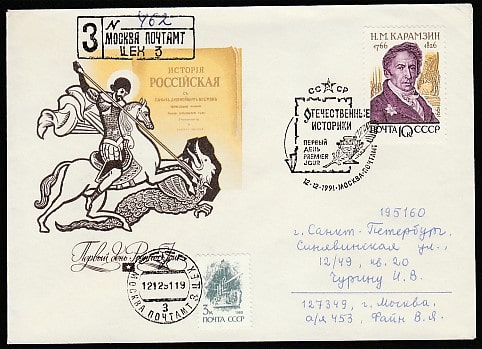 З
N 462
МОСКВА ПОЧТАМТ
ЦЕХ 3
ИСТОРІЯ
РОССІЙСКАЯ
СЪ
Первый день
Н.М. КАРАМЗИН
1766 1826
ПОЧТА 10к СССР
СССР
ОТЕЧЕСТВЕННЫЕ
ИСТОРИКИ
ПЕРВЫЙ
ДЕНЬ
PREMIER
JOUR
12-12-1991 • МОСКВА-ПОЧТАМТ
ЦЕХ
12129119
МОСКВА ПОЧТАМТ
3
3к
ПОЧТА СССР
195160
г. Санкт-Петербург,
Синявинская ул.,
12/49, кв. 20
Чурину И.В.
127349, г. Москва,
а/я 453, Файн В.Я.